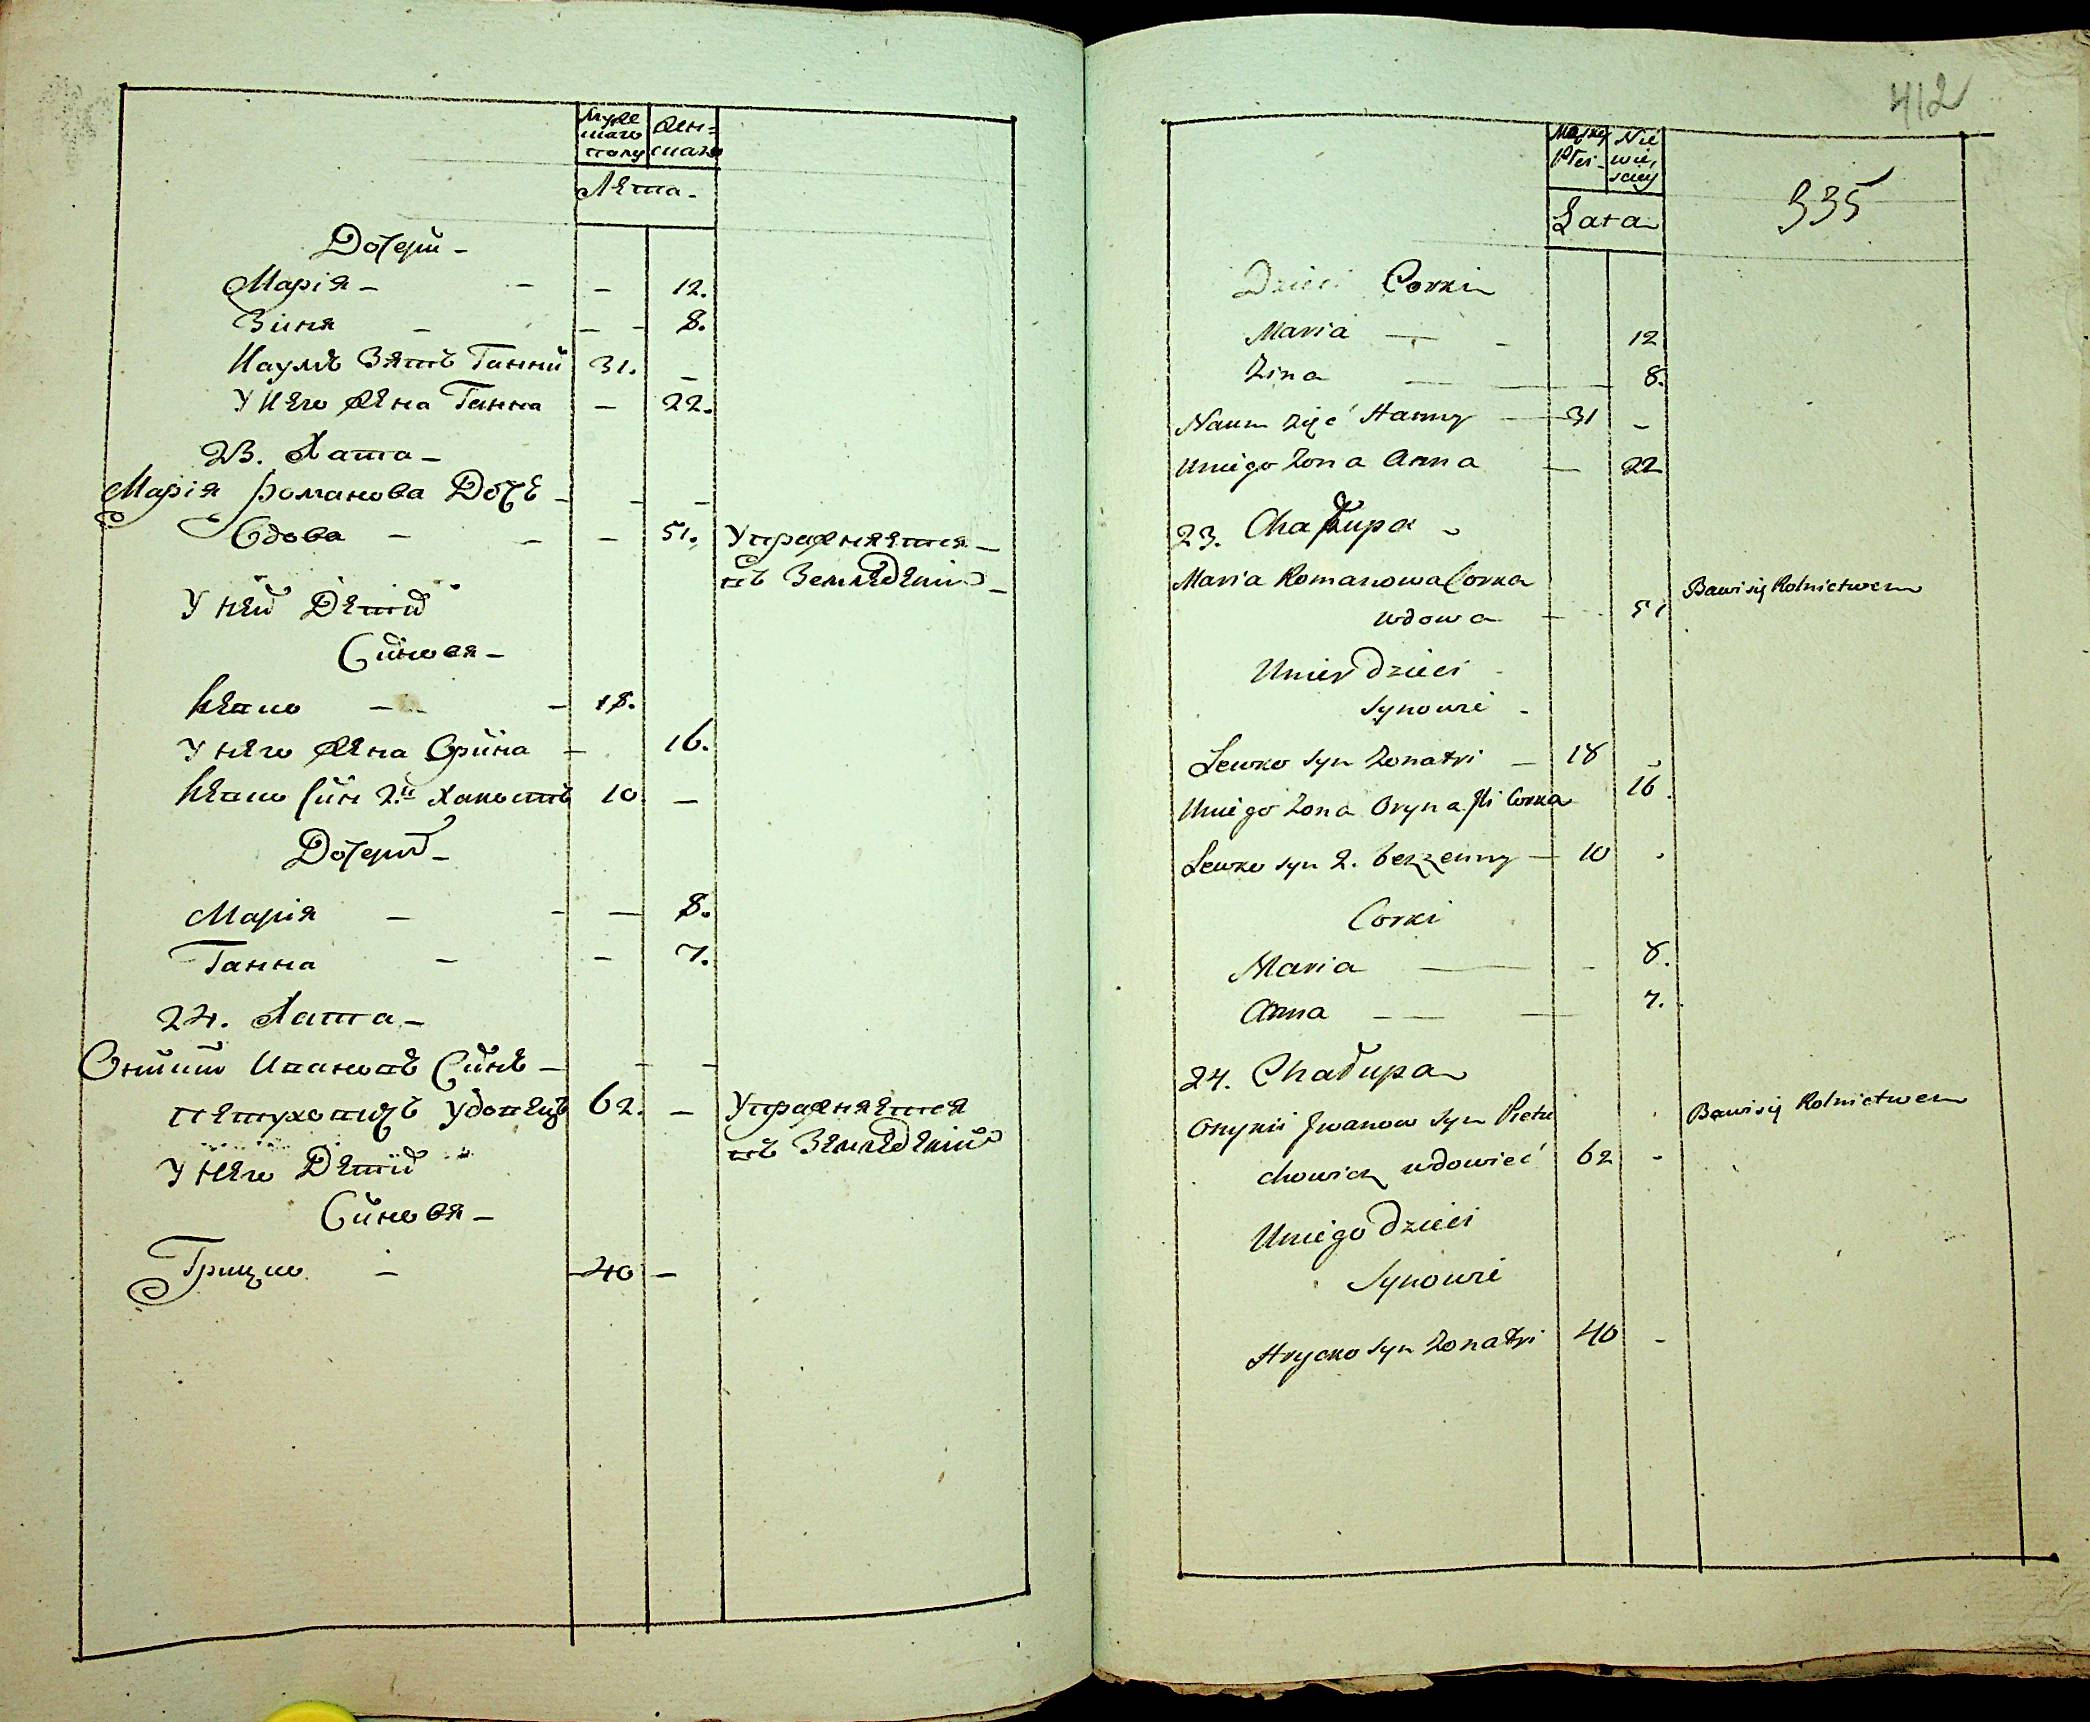 Муже
скаго
полу
Жен=
скаго
Лѣта -
Дочери -
Марія - - - 12.
Зіня - - - 8.
Наумъ Зять Ганни 31. -
У него жена Ганна - 22.
23. Хата -
Марія романова Дочь - - -
Вдова - - - 51. Упражняется -
въ Земледеліи -
У ней Дети
Синовя -
Левко - - 18.
У него жена Орина - 16.
Левко Син 2й Холостъ 10. -
Дочери -
Марія - - - 8.
Ганна - - 7.
24. Хата -
Иванов Синъ - - -
Петуховичъ Удовецъ 62. - Упражняется
въ Земледеліи
У него Дети
Синовя -
Грицко - 40 -
412
Męzkej
Płci -
Nie
wie,
sciey
335
Lata
Dzieci Corki
Maria - - 12
Zina - - 8.
Naum zięć Hanny - 31 -
Uniego Zona Anna - 22
23. Chałupa -
Maria Romanowa Corka
wdowa - 51 Bawi się Rolnictwem
Uniey Dzieci -
Synowie -
Lewko syn Zonaty - 18 -
Uniego Zona Oryna Corka 16.
Lewko syn 2. bezzenny - 10 -
Corki
Maria - - 8.
Anna - - 7.
24. Chałupa
Iwanow syn Pietu
chowicz wdowieć 62 - Bawi się Rolnictwem
Uniego Dzieci
Synowie
Hrycko syn Zonaty 40 -